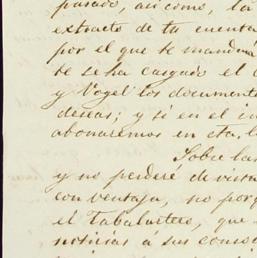 pasado, asi como, la
extracto de tu cuenta
por el que te mandar
te se ha cargado el
y Vogel los document
deseas; y si en el in
abonaremos en cta, l
Sobre las
y no perderé de vista
con ventaja, no por
el Tabaluetes, que
noticias á sus conso